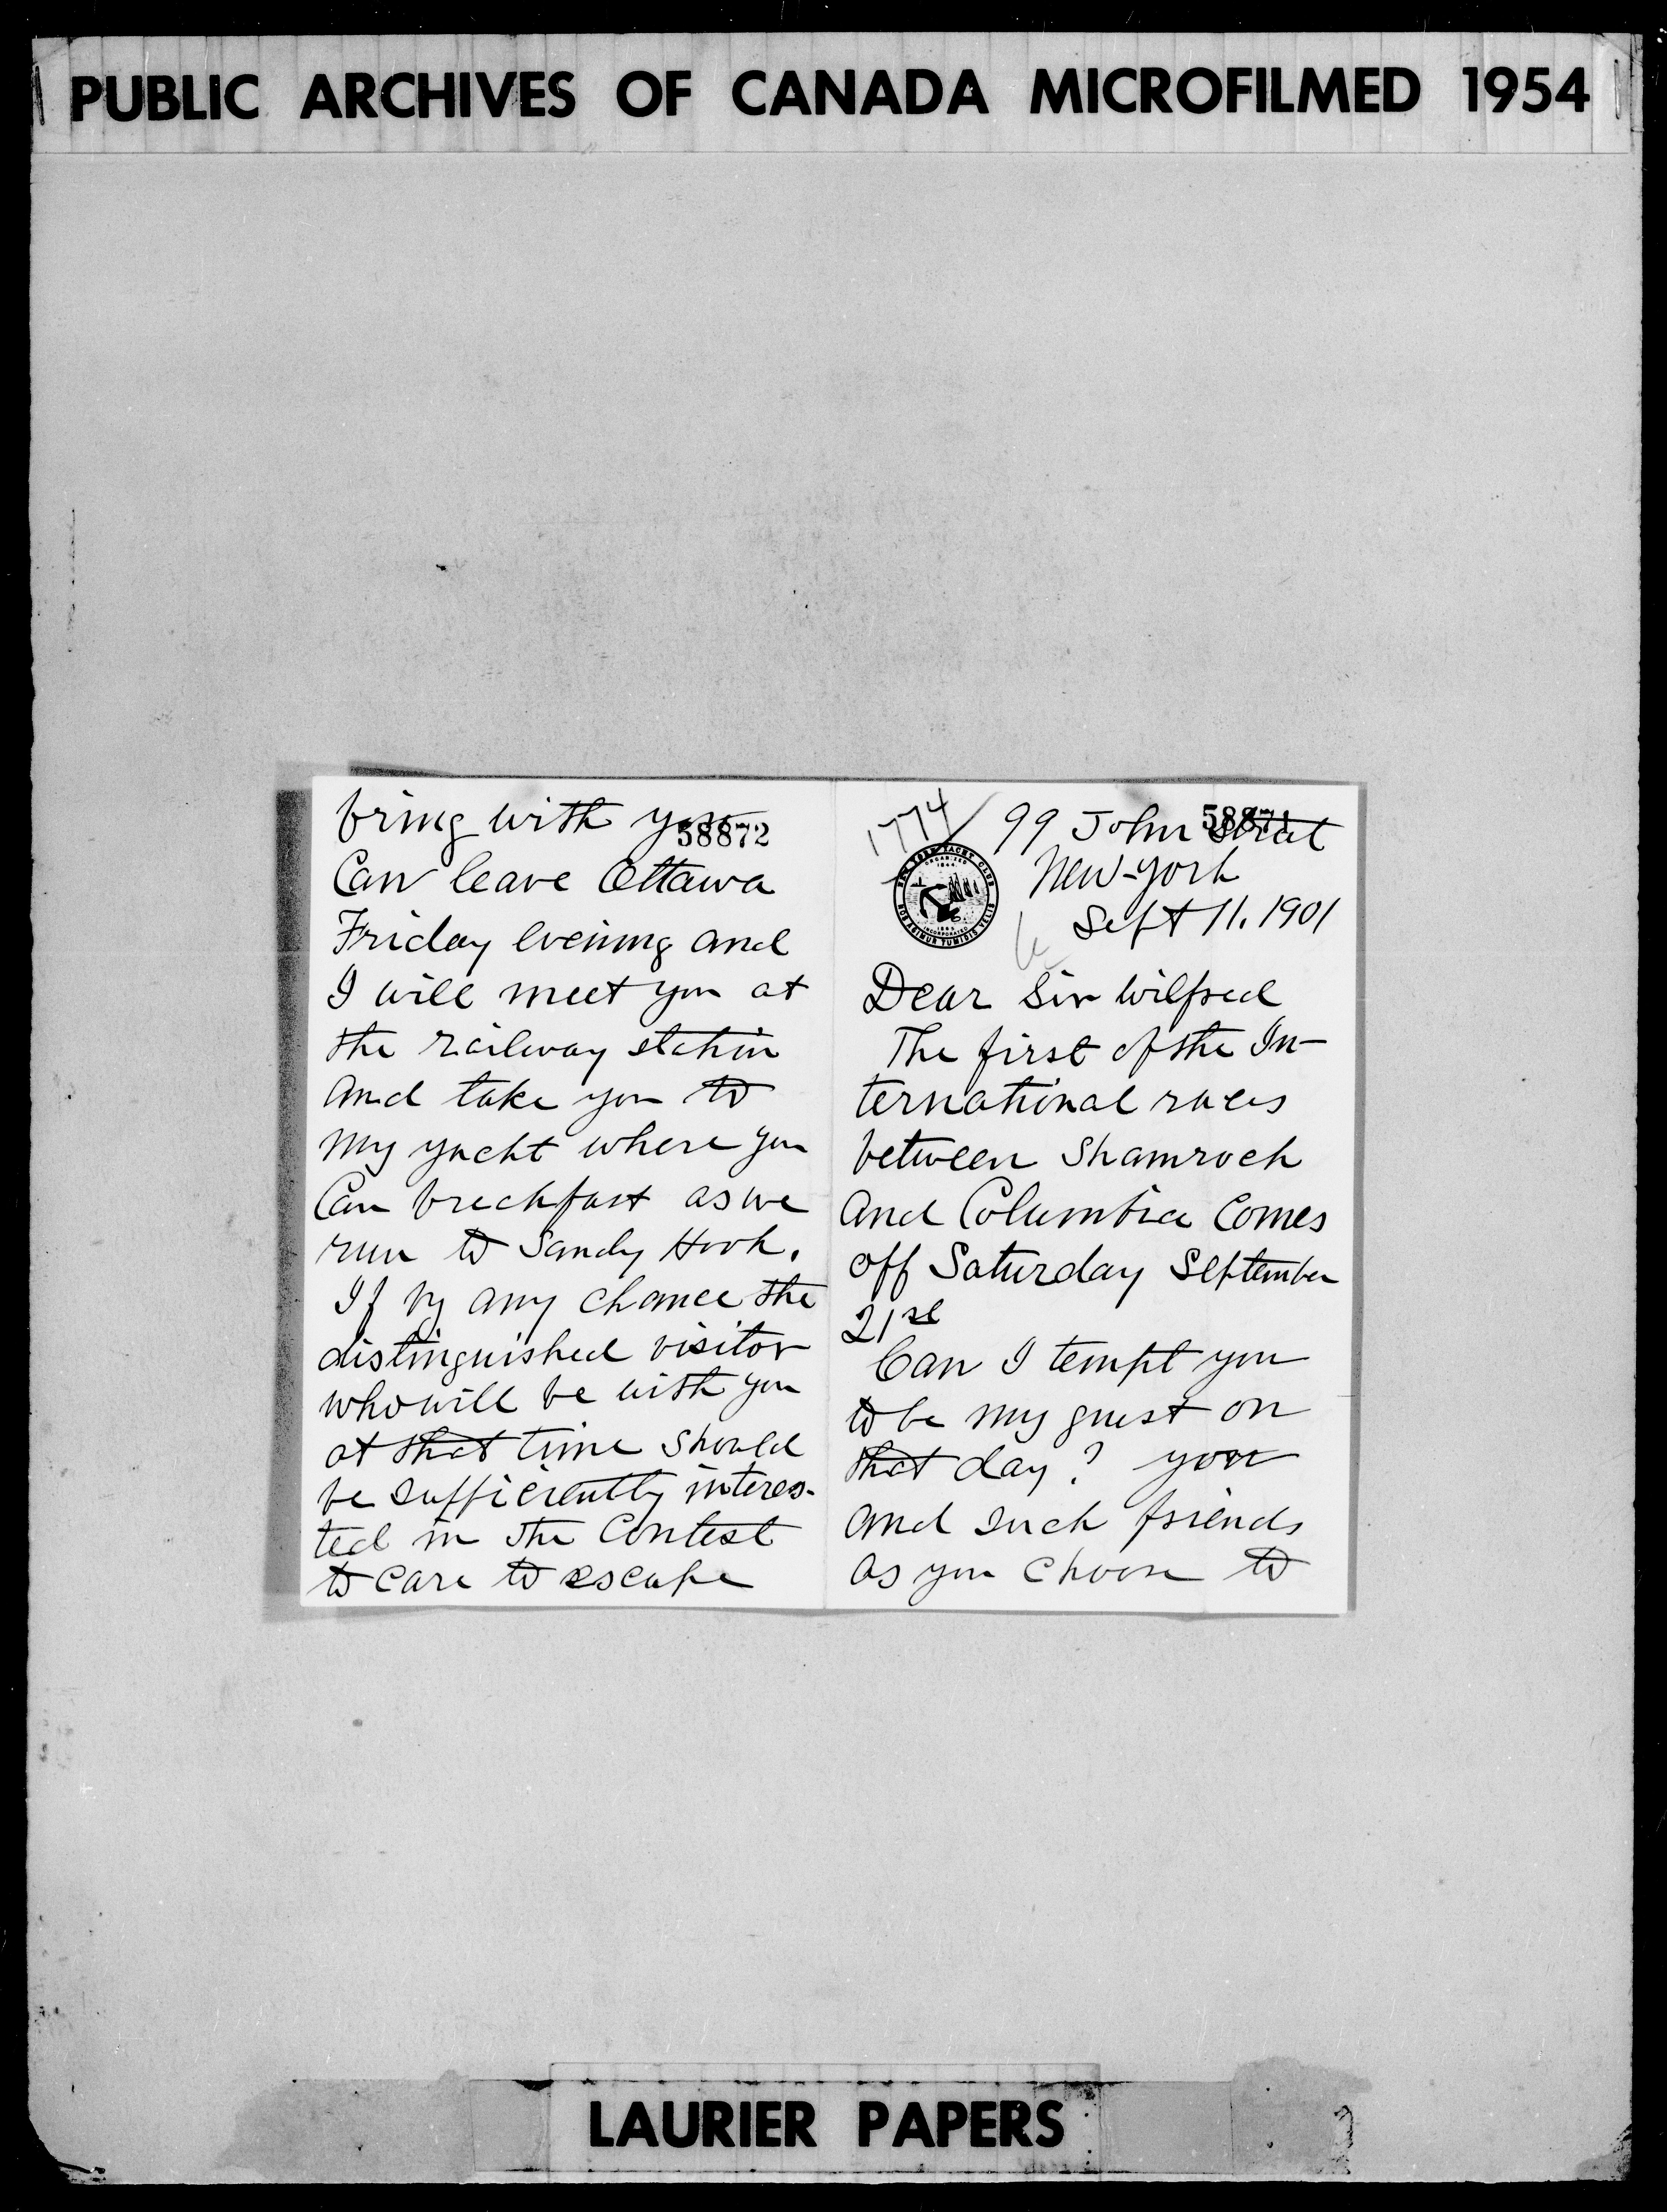 PUBLIC ARCHIVES OF CANADA MICROFILMED 1954
1774
99 John Street
58871
New-York
Sept 11. 1901
NEW YORK YACHT CLUB
ORGANIZED
1844
INCORPORATED
1865
NOS AGIMUR TUMIDIS VELIS
Dear Sir Wilfred
The first of the In-
ternational races
between Shamrock
and Columbia Comes
off Saturday September
21st
Can I tempt you
to be my guest on
that day? you
and such friends
as you choose to
bring with you
58872
Can leave Ottawa
Friday evening and
I will meet you at
the railway station
and take you to
my yacht where you
Can breakfast as we
run to Sandy Hook.
If by any chance the
distinguished visitor
who will be with you
at that time should
be sufficiently interes-
ted in the Contest
to care to escape
LAURIER PAPERS